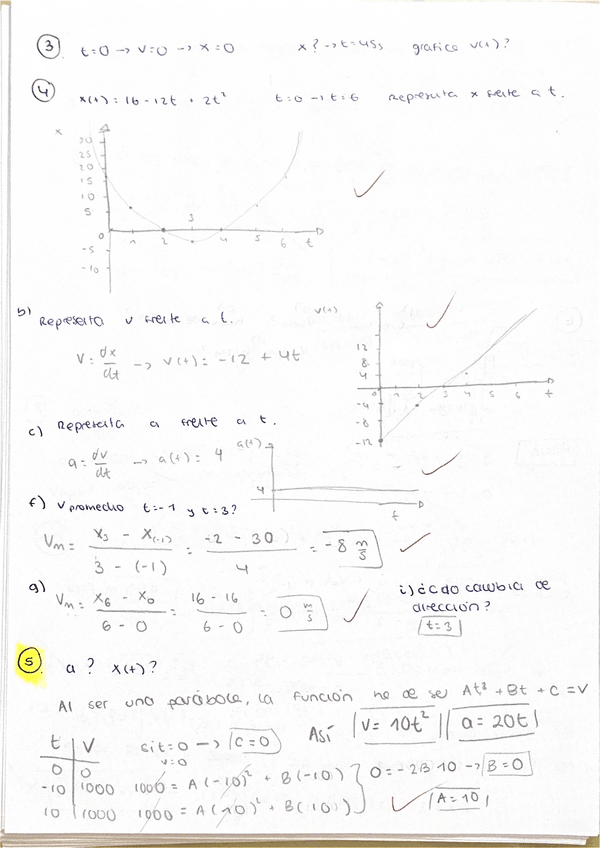 3 t=0 → v=0 → x=0 x? → t=45s grafica v(t)?
4
x(t) = 16 - 12t + 2t² t=0 → t=6 Representa x frente a t.
x
30
25
20
15
10
5
0
-5
-10
1 2 3 4 5 6 t
b) Representa v frente a t.
V = dx/dt → v(t) = -12 + 4t
v(t)
12
8
4
0
-4
-8
-12
1 2 3 4 5 6 t
c) Representa a frente a t.
a = dv/dt → a(t) = 4
a(t)
4
t
f) v promedio t=-1 y t=3?
Vm = (x3 - x(-1)) / (3 - (-1)) = (-2 - 30) / 4 = -8 m/s
g) Vm = (x6 - x0) / (6 - 0) = (16 - 16) / (6 - 0) = 0 m/s
i) ¿Cdo cambia de
dirección?
t=3
5. a? x(t)?
Al ser una parábola, la función ha de ser At² + Bt + C = V
Así V = 10t² a = 20t
t V
0 0
-10 1000
10 1000
si t=0 → C=0
v=0
1000 = A(-10)² + B(-10)
1000 = A(10)² + B(10)
0 = -2B·10 → B=0
A=10